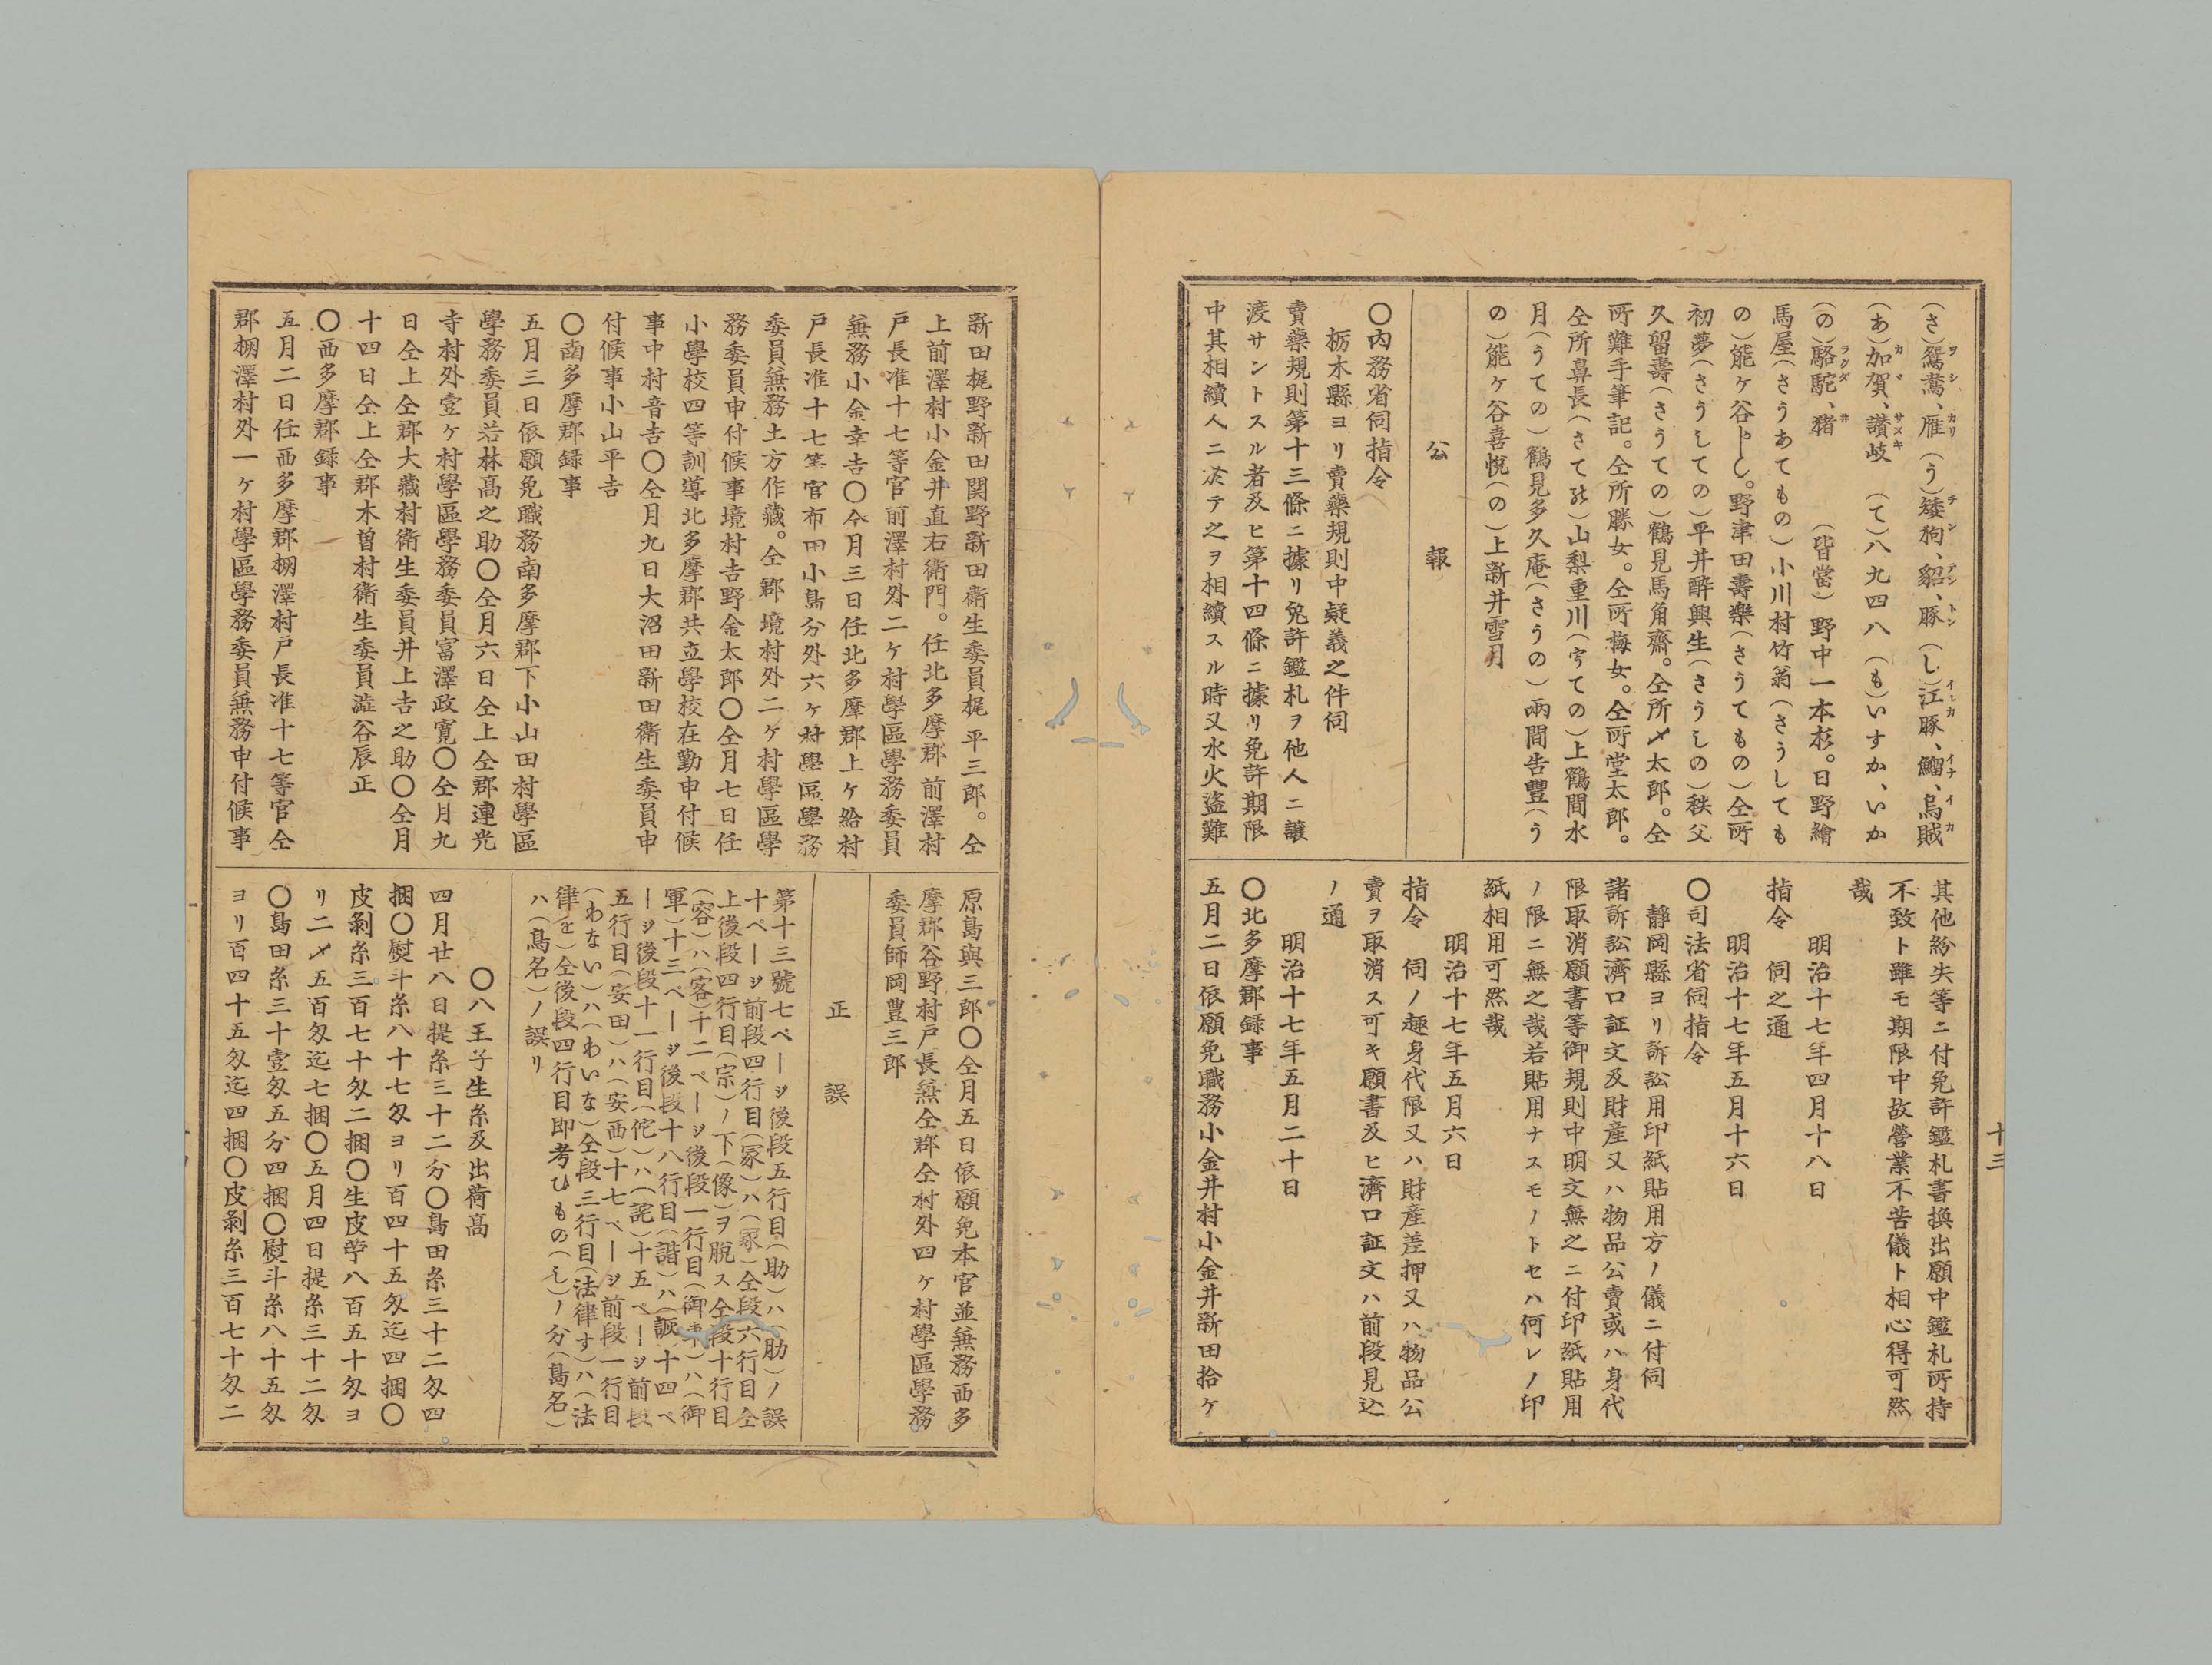 十三
(さ)鴛鴦、雁(う)矮狗、貂、豚(し)江豚、鰡、烏賊
(あ)加賀、讃岐　(て)八九四八(も)いすか、いか
(の)駱駝、猪　(皆當)野中一本杉。日野繪
馬屋(さうあてもの)小川村竹翁(さうしても
の)能ヶ谷とし。野津田壽樂(さうてもの)仝所
初夢(さうしての)平井醉興生(さうしの)秩父
久留壽(さうての)鶴見馬角齋。仝所〆太郎。仝
所難手筆記。仝所勝女。仝所梅女。仝所堂太郎。
仝所鼻長(さて)山梨重川(うての)上鶴間水
月(うての)鶴見多久庵(さうの)兩間告豐(う
の)能ヶ谷喜悦(の)上新井雪月
公報
〇内務省伺指令
栃木縣ヨリ賣藥規則中疑義之件伺
賣藥規則第十三條ニ據リ免許鑑札ヲ他人ニ讓
渡サントスル者及ヒ第十四條ニ據リ免許期限
中其相續人ニ於テ之ヲ相續スル時又水火盜難
其他紛失等ニ付免許鑑札書換出願中鑑札所持
不致ト雖モ期限中故營業不苦儀ト相心得可然
哉
明治十七年四月十八日
指令　伺之通
明治十七年五月十六日
〇司法省伺指令
靜岡縣ヨリ訴訟用印紙貼用方ノ儀ニ付伺
諸訴訟濟口証文及財産又ハ物品公賣或ハ身代
限取消願書等御規則中明文無之ニ付印紙貼用
ノ限ニ無之哉若貼用ナスモノトセハ何レノ印
紙相用可然哉
明治十七年五月六日
指令　伺ノ趣身代限又ハ財産差押又ハ物品公
賣ヲ取消ス可キ願書及ヒ濟口証文ハ前段見込
ノ通
明治十七年五月二十日
〇北多摩郡録事
五月二日依願免職務小金井村小金井新田拾ヶ
新田梶野新田関野新田衛生委員梶平三郎。仝
上前澤村小金井直右衛門。任北多摩郡前澤村
戸長准十七等官前澤村外二ヶ村學區學務委員
無務小金幸吉〇仝月三日任北多摩郡上ヶ給村
戸長准十七等官布田小島分外六ヶ村學區學務
委員無務土方作藏。仝郡境村外二ヶ村學區學
務委員申付候事境村吉野金太郎〇仝月七日任
小學校四等訓導北多摩郡共立學校在勤申付候
事中村音吉〇仝月九日大沼田新田衛生委員申
付候事小山平吉
〇南多摩郡録事
五月三日依願免職務南多摩郡下小山田村學區
學務委員若林高之助〇仝月六日仝上仝郡連光
寺村外壹ヶ村學區學務委員富澤政寛〇仝月九
日仝上仝郡大藏村衛生委員井上吉之助〇仝月
十四日仝上仝郡木曽村衛生委員澁谷辰正
〇西多摩郡録事
五月二日任西多摩郡棚澤村戸長准十七等官仝
郡棚澤村外一ヶ村學區學務委員無務申付候事
原島與三郎〇仝月五日依願免本官並無務西多
摩郡谷野村戸長無仝郡仝村外四ヶ村學區學務
委員師岡豊三郎
正誤
第十三號七ページ後段五行目(助)ハ(肋)ノ誤
十ページ前段四行目(冢)ハ(冢)仝段六行目仝
上後段四行目(宗)ノ下(像)ヲ脱ス仝段十行目
(容)ハ(客)十二ページ後段一行目(御)ハ(御
軍)十三ページ後段十八行目(諧)ハ(誠)十四ペ
ージ後段十一行目(佗)ハ(詫)十五ページ前段
五行目(安田)ハ(安西)十七ページ前段一行目
(わない)ハ(わいな)仝段三行目(法律す)ハ(法
律を)仝後段四行目即考ひもの(し)ノ分(島名)
ハ(鳥名)ノ誤リ
〇八王子生糸及出荷高
四月廿八日提糸三十二分〇島田糸三十二匁四
捆〇熨斗糸八十七匁ヨリ百四十五匁迄四捆〇
皮剝糸三百七十匁二捆〇生皮苧八百五十匁ヨ
リ二〆五百匁迄七捆〇五月四日提糸三十二匁
〇島田糸三十壹匁五分四捆〇熨斗糸八十五匁
ヨリ百四十五匁迄四捆〇皮剝糸三百七十匁二